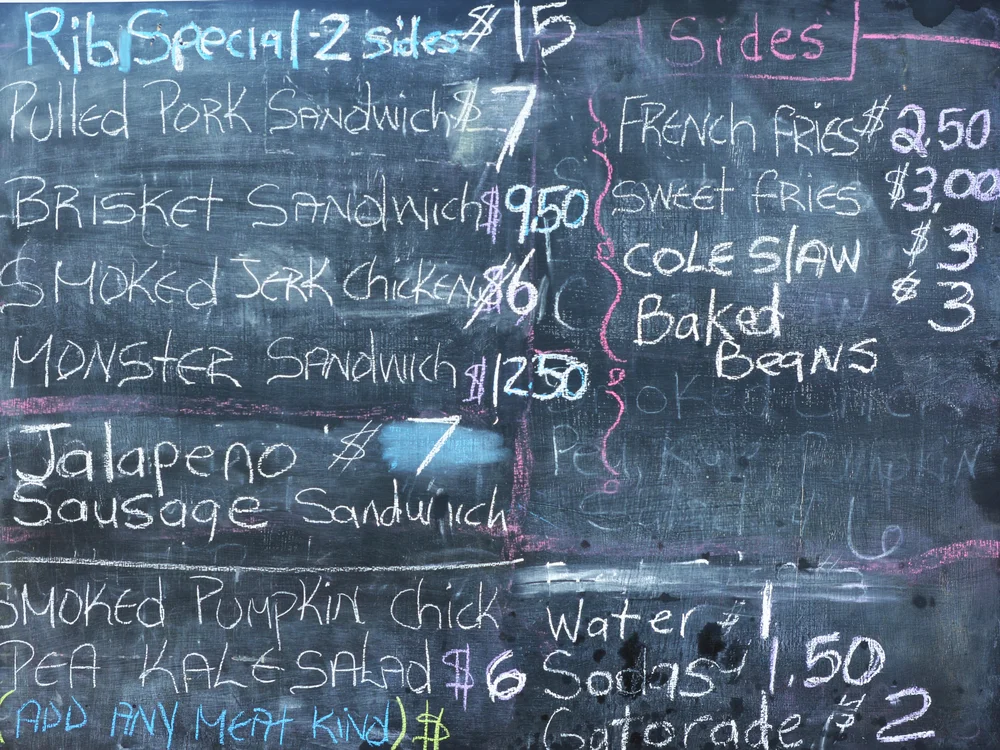 Rib Special - 2 sides $ 15
Pulled Pork Sandwich $ 7
Brisket Sandwich $9.50
Smoked Jerk Chicken $6
Monster Sandwich $12.50
Jalapeno $ 7
Sausage Sandwich
Smoked Pumpkin Chick
Pea Kale Salad $6
(ADD ANY MEAT KIND) $
Sides
French fries $2.50
Sweet fries $3.00
Cole Slaw $3
Baked $3
Beans
Water $1
Sodas 1.50
Gatorade $2